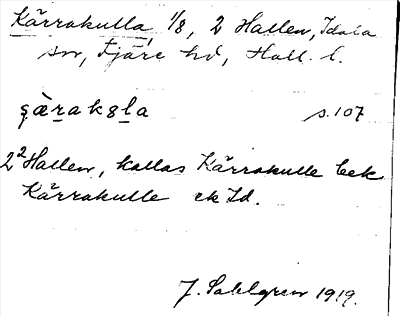 Kärrakulla, 1/8, 2 Hallen, Idala
sn, Fjäre hd, Hall. l.
s. 107
2² Hallen, kallas Kärrakulle bek
Kärrakulle ek Id.
J. Sahlgren 1919.